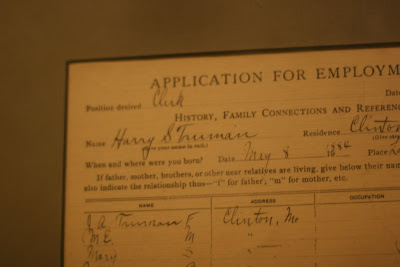 APPLICATION FOR EMPLOYM
Position desired Clerk Dat
HISTORY, FAMILY CONNECTIONS AND REFEREN
Name Harry S Truman Residence Clinton
(Give your name in full.) (Give
When and where were you born? Date May 8 1884 Place
If father, mother, brothers, or other near relatives are living, give below their nam
also indicate the relationship thus—"f" for father, "m" for mother, etc.
NAME ADDRESS OCCUPATION
J A Truman F Clinton, Mo
M. E. M " "
Mary S " "